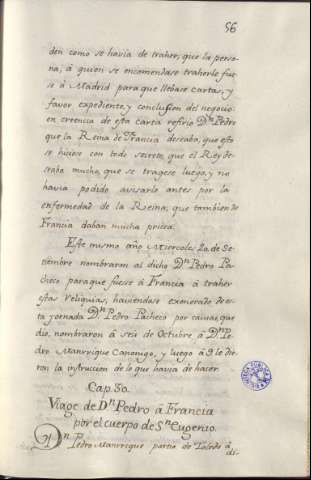 56
den como se havia de traher, que la perso-
na, á quien se encomendase traherle fue-
se á Madrid para que llebase cartas, y
favor expediente, y conclusion del negocio:
en creencia de esta carta refirio Dn. Pedro
que la Reina de Francia deseaba, que esto
se hiciese con todo secreto, que el Rey de-
seaba mucho, que se tragese luego, y no
havia podido avisarlo antes por la
enfermedad de la Reina; que tambien de
Francia daban mucha priesa.
Este mismo año Miercoles 20 de Se-
tiembre nombraron al dicho Dn. Pedro Pa-
checo para que fuese á Francia á traher
estas Reliquias, haviendose exonerado de es-
ta jornada Dn. Pedro Pacheco por causas que
dio, nombraron á seis de Octubre á Dn. Pe-
dro Manrrique Canonigo, y luego á 9 le die-
ron la instruccion de lo que havia de hacer.
Cap. 30.
Viage de Dn. Pedro á Francia
por el cuerpo de Sn. Eugenio.
Dn. Pedro Manrrique partio de Toledo á
di-